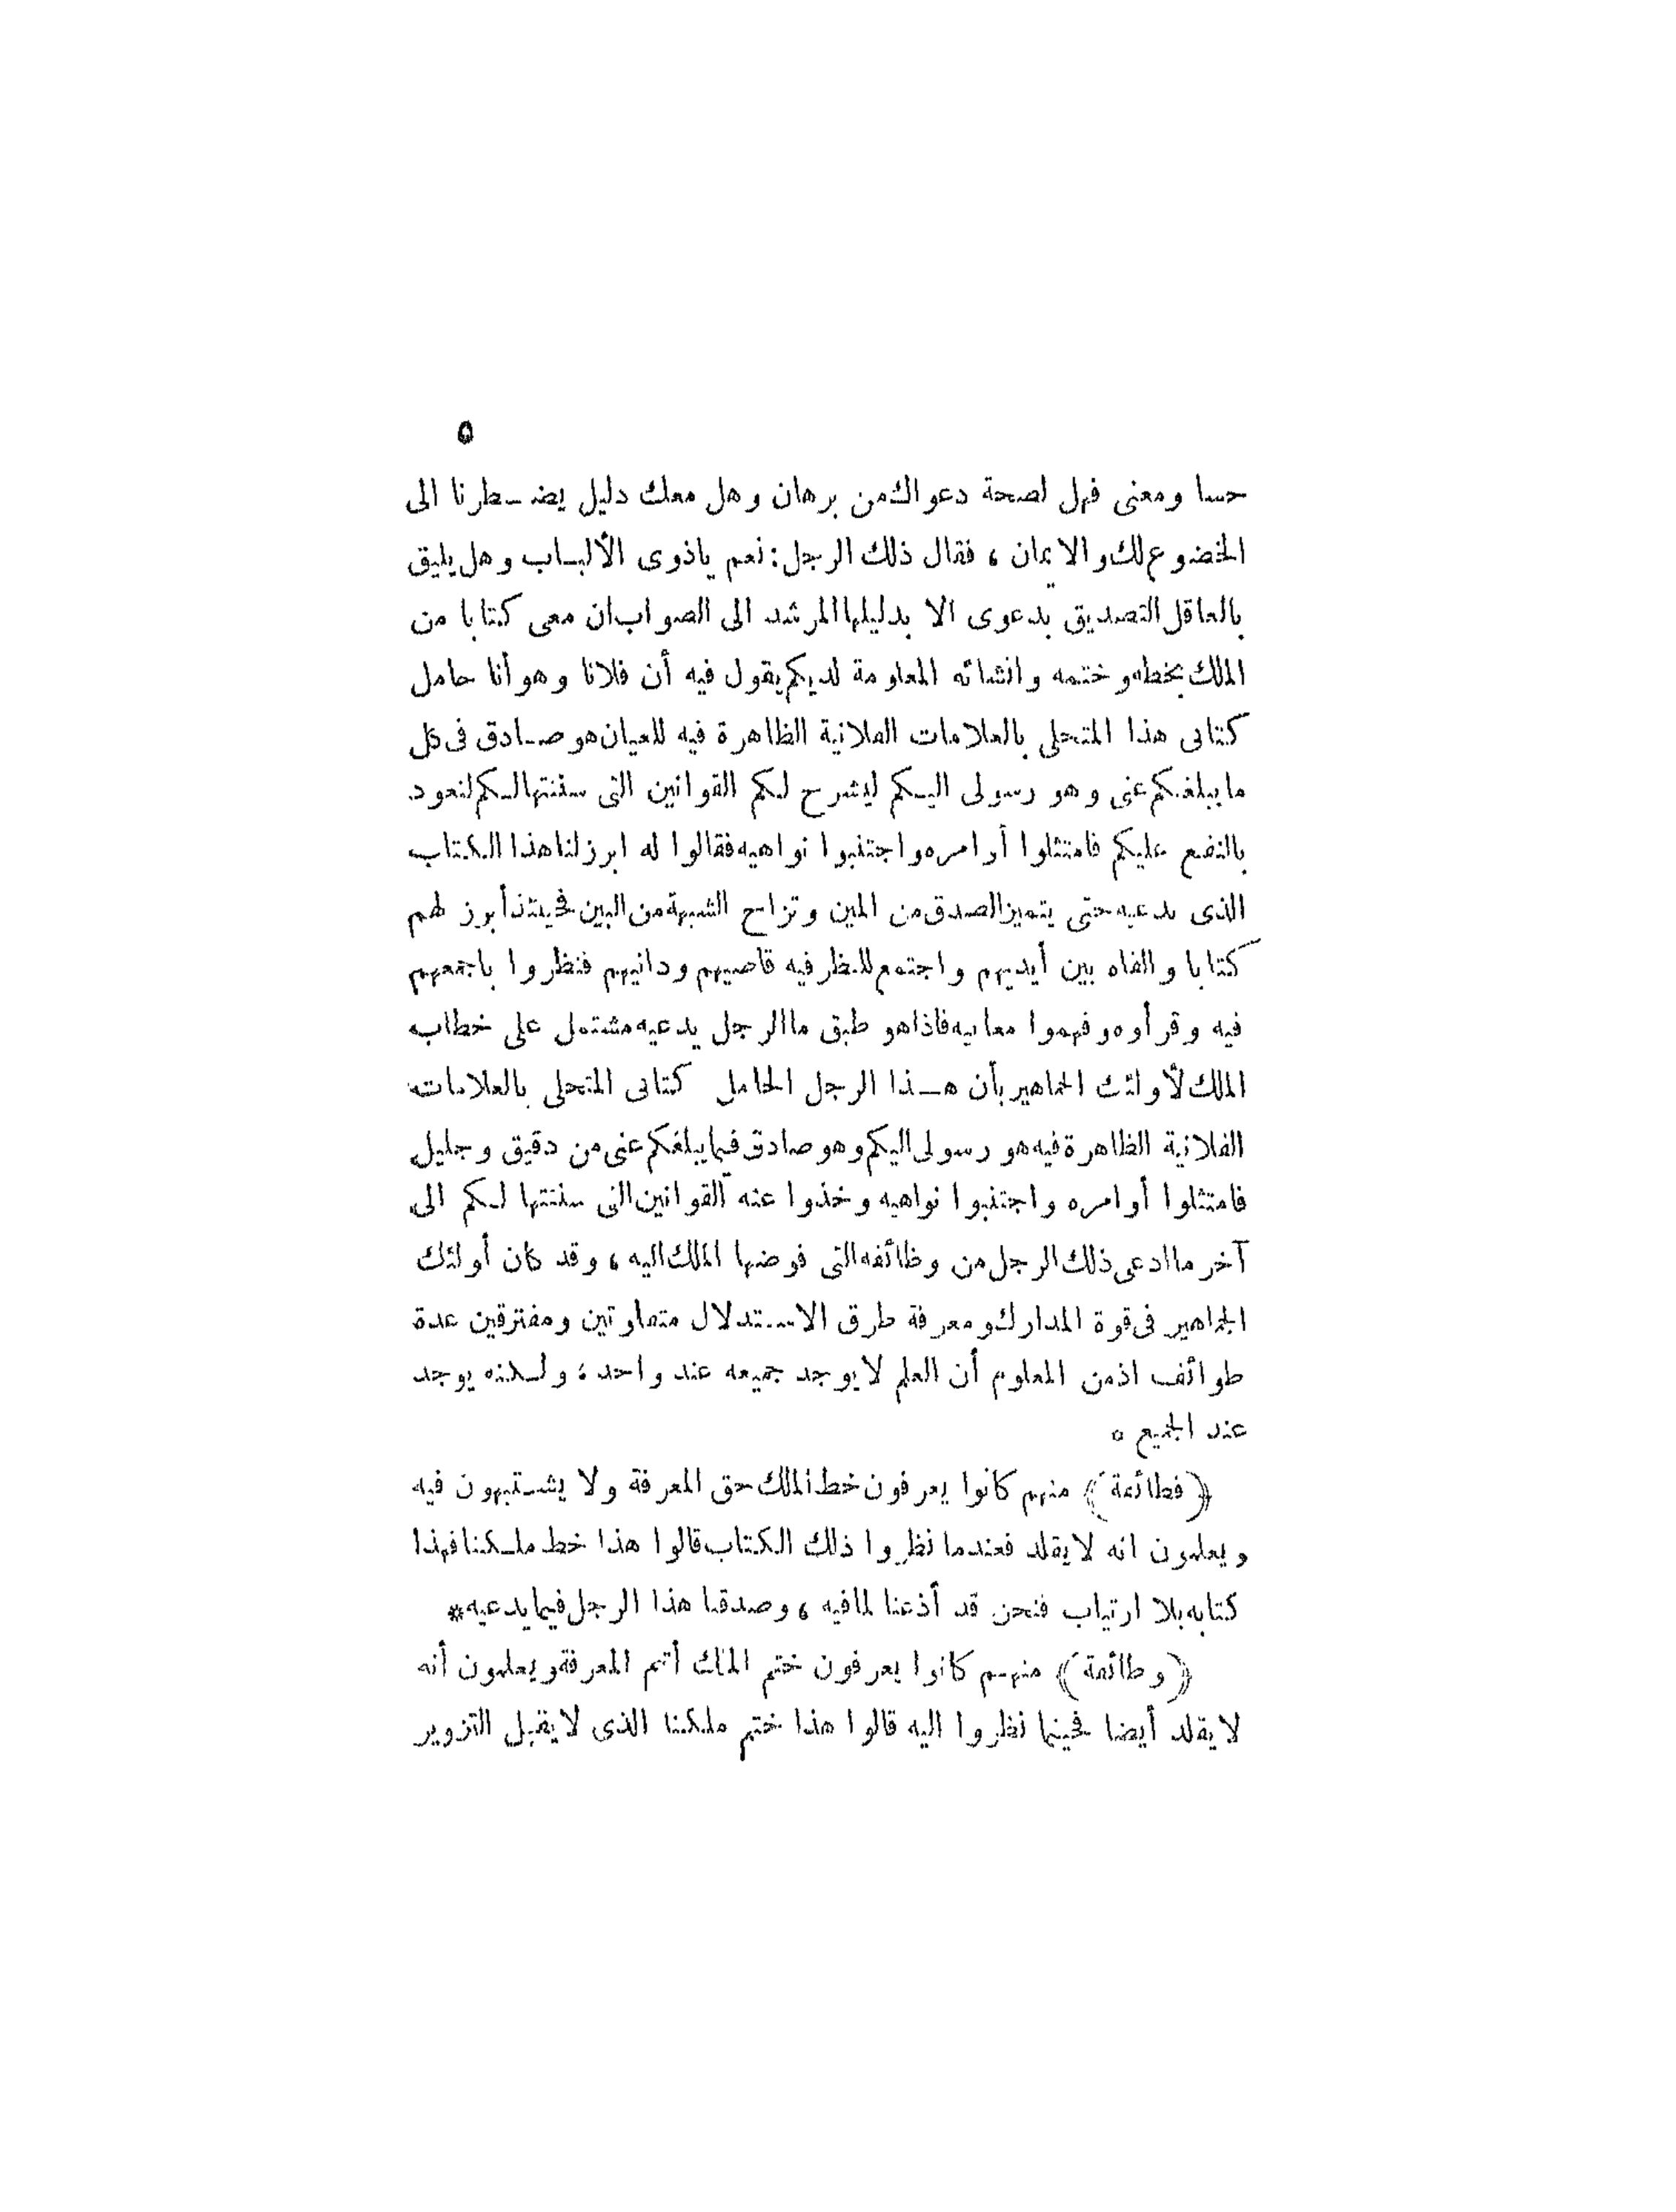 ٥
حسا ومعنى فهل لصحة دعواك من برهان وهل معك دليل يضـطرنا الى
الخضوع لك والايمان ، فقال ذلك الرجل: نعم ياذوى الألبـاب وهل يليق
بالعاقل التصديق بدعوى الا بدليلها المرشد الى الصواب ان معى كتابا من
الملك بخطه وختمه وانشائه المعلومة لديكم يقول فيه أن فلانا وهو أنا حامل
كتابى هذا المتحلى بالعلامات الفلانية الظاهرة فيه للعيان هو صـادق فى كل
ما يبلغكم عنى وهو رسولى اليـكم ليشرح لكم القوانين التى سننتها لـكم لتعود
بالنفع عليكم فامتثلوا أوامره واجتنبوا نواهيه فقالوا له ابرز لنا هذا الكتاب
الذى تدعيه حتى يتميز الصدق من المين وتزاح الشبهة من البين فحينئذ أبرز لهم
كتابا والقاه بين أيديهم واجتمع للنظر فيه قاصيهم ودانيهم فنظروا باجمعهم
فيه وقرأوه وفهموا معانيه فاذا هو طبق ما الرجل يدعيه مشتمل على خطاب
الملك لأولئك الجماهير بأن هـذا الرجل الحامل كتابى المتحلى بالعلامات
الفلانية الظاهرة فيه هو رسولى اليكم وهو صادق فيما يبلغكم عنى من دقيق وجليل
فامتثلوا أوامره واجتنبوا نواهيه وخذوا عنه القوانين التى سننتها لـكم الى
آخر ما ادعى ذلك الرجل من وظائفه التى فوضها الملك اليه ، وقد كان أولئك
الجماهير فى قوة المدارك ومعرفة طرق الاسـتدلال متفاوتين ومفترقين عدة
طوائف اذ من المعلوم أن العلم لا يوجد جميعه عند واحد ، ولـكنه يوجد
عند الجميع ٥
﴿فطائفة﴾ منهم كانوا يعرفون خط الملك حق المعرفة ولا يشـتبهون فيه
ويعلمون انه لا يقلد فعندما نظروا ذلك الكتاب قالوا هذا خط ملـكنا فهذا
كتابه بلا ارتياب فنحن قد أذعنا لما فيه ، وصدقنا هذا الرجل فيما يدعيه *
﴿وطائفة﴾ منهـم كانوا يعرفون ختم الملك أتم المعرفة ويعلمون أنه
لا يقلد أيضا فحينما نظروا اليه قالوا هذا ختم ملكنا الذى لا يقبل التزوير